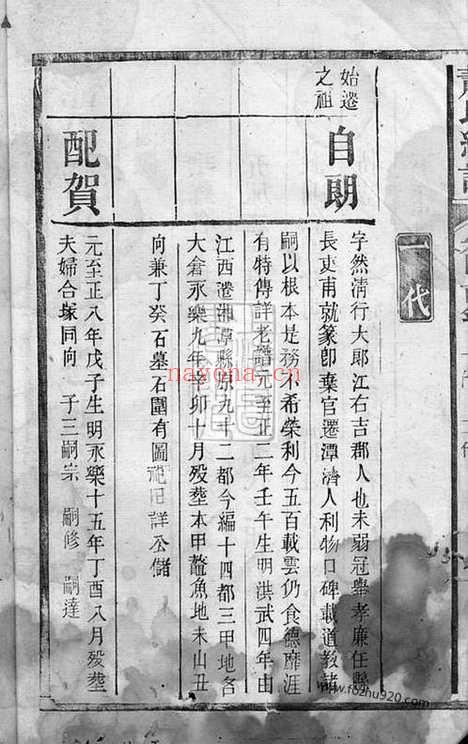 一代
始遷
之祖
自朗
字然清行大郎江右吉郡人也未弱冠舉孝廉任
長吏甫就篆卽棄官遷潭濟人利物口碑載道教諸
嗣以根本是務不希榮利今五百載雲仍食德靡涯
有特傳詳老譜元至正二年壬午生明洪武四年由
江西遷湘潭縣原九十二都今編十四都三甲地名
大倉永樂九年辛卯十月歿塟本甲鰲魚地未山丑
向兼丁癸石墓石圍有圖祀田詳公儲
配賀
元至正八年戊子生明永樂十五年丁酉八月歿塟
夫婦合塚同向 子三嗣宗 嗣修 嗣達
nayona.cn
www.fozhu920.com